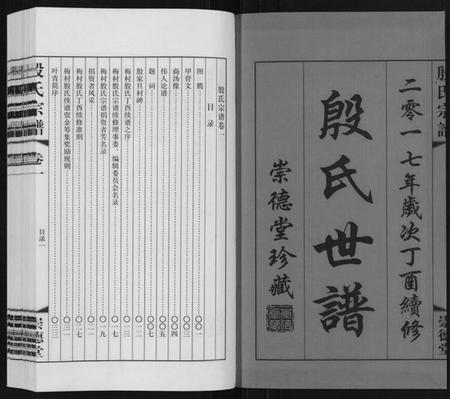 殷氏宗譜
崇德堂
二零一七年歲次丁酉續修
殷氏世譜
崇德堂珍藏
殷氏宗谱卷一
目录
图腾 〇〇一
甲骨文 〇〇三
商汤像 〇〇四
伟人论谱 〇〇五
题词 〇〇七
殷家旦村碑 〇一二
梅村殷氏丁酉续谱之序 〇一三
梅村殷氏宗谱续修理事委、编辑委员会名录 〇一七
梅村殷氏宗谱捐资者芳名录 〇一九
捐资者风采 〇二一
梅村殷氏丁酉续修准则 〇二七
梅村殷氏续谱资金筹集奖励规则 〇三一
叶青简序 〇三三
殷氏宗譜
卷一
目录一
崇德堂